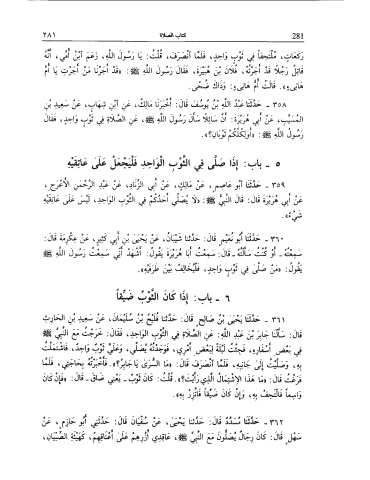 ٢٨١ كتاب الصلاة 281
رَكَعَاتٍ، مُلْتَحِفاً فِي ثَوْبٍ وَاحِدٍ، فَلَمَّا انْصَرَفَ، قُلْتُ: يَا رَسُولَ اللَّهِ، زَعَمَ ابْنُ أُمِّي، أَنَّهُ
قَاتِلٌ رَجُلًا قَدْ أَجَرْتُهُ، فُلَانَ بْنَ هُبَيْرَةَ، فَقَالَ رَسُولُ اللَّهِ ﷺ: «قَدْ أَجَرْنَا مَنْ أَجَرْتِ يَا أُمَّ
هَانِىءٍ». قَالَتْ أُمُّ هَانِىءٍ: وَذَاكَ ضُحًى.
٣٥٨ - حَدَّثَنَا عَبْدُ اللَّهِ بْنُ يُوسُفَ قَالَ: أَخْبَرَنَا مَالِكٌ، عَنِ ابْنِ شِهَابٍ، عَنْ سَعِيدِ بْنِ
المُسَيَّبِ، عَنْ أَبِي هُرَيْرَةَ: أَنَّ سَائِلًا سَأَلَ رَسُولَ اللَّهِ ﷺ، عَنِ الصَّلَاةِ فِي ثَوْبٍ وَاحِدٍ، فَقَالَ
رَسُولُ اللَّهِ ﷺ: «أَوَلِكُلِّكُمْ ثَوْبَانِ؟».
٥ - باب: إِذَا صَلَّى فِي الثَّوْبِ الْوَاحِدِ فَلْيَجْعَلْ عَلَى عَاتِقَيْهِ
٣٥٩ - حَدَّثَنَا أَبُو عَاصِمٍ، عَنْ مَالِكٍ، عَنْ أَبِي الزِّنَادِ، عَنْ عَبْدِ الرَّحْمنِ الأَعْرَجِ،
عَنْ أَبِي هُرَيْرَةَ قَالَ: قَالَ النَّبِيُّ ﷺ: «لَا يُصَلِّي أَحَدُكُمْ فِي الثَّوْبِ الْوَاحِدِ، لَيْسَ عَلَى عَاتِقَيْهِ
شَيْءٌ».
٣٦٠ - حَدَّثَنَا أَبُو نُعَيْمٍ قَالَ: حَدَّثَنَا شَيْبَانُ، عَنْ يَحْيَى بْنِ أَبِي كَثِيرٍ، عَنْ عِكْرِمَةَ قَالَ:
سَمِعْتُهُ - أَوْ كُنْتُ سَأَلْتُهُ - قَالَ: سَمِعْتُ أَبَا هُرَيْرَةَ يَقُولُ: أَشْهَدُ أَنِّي سَمِعْتُ رَسُولَ اللَّهِ ﷺ
يَقُولُ: «مَنْ صَلَّى فِي ثَوْبٍ وَاحِدٍ، فَلْيُخَالِفْ بَيْنَ طَرَفَيْهِ».
٦ - باب: إِذَا كَانَ الثَّوْبُ ضَيِّقاً
٣٦١ - حَدَّثَنَا يَحْيَى بْنُ صَالِحٍ قَالَ: حَدَّثَنَا فُلَيْحُ بْنُ سُلَيْمَانَ، عَنْ سَعِيدِ بْنِ الحَارِثِ
قَالَ: سَأَلْنَا جَابِرَ بْنَ عَبْدِ اللَّهِ: عَنِ الصَّلَاةِ فِي الثَّوْبِ الْوَاحِدِ، فَقَالَ: خَرَجْتُ مَعَ النَّبِيِّ ﷺ
فِي بَعْضِ أَسْفَارِهِ، فَجِئْتُ لَيْلَةً لِبَعْضِ أَمْرِي، فَوَجَدْتُهُ يُصَلِّي، وَعَلَيَّ ثَوْبٌ وَاحِدٌ، فَاشْتَمَلْتُ
بِهِ، وَصَلَّيْتُ إِلَى جَانِبِهِ، فَلَمَّا انْصَرَفَ قَالَ: «مَا السُّرَى يَا جَابِرُ؟». فَأَخْبَرْتُهُ بِحَاجَتِي، فَلَمَّا
فَرَغْتُ قَالَ: «مَا هَذَا الِاشْتِمَالُ الَّذِي رَأَيْتُ؟». قُلْتُ: كَانَ ثَوْبٌ - يَعْنِي ضَاقَ - قَالَ: «فَإِنْ كَانَ
وَاسِعاً فَالْتَحِفْ بِهِ، وَإِنْ كَانَ ضَيِّقاً فَاتَّزِرْ بِهِ».
٣٦٢ - حَدَّثَنَا مُسَدَّدٌ قَالَ: حَدَّثَنَا يَحْيَى، عَنْ سُفْيَانَ قَالَ: حَدَّثَنِي أَبُو حَازِمٍ، عَنْ
سَهْلٍ قَالَ: كَانَ رِجَالٌ يُصَلُّونَ مَعَ النَّبِيِّ ﷺ، عَاقِدِي أُزْرِهِمْ عَلَى أَعْنَاقِهِمْ، كَهَيْئَةِ الصِّبْيَانِ،